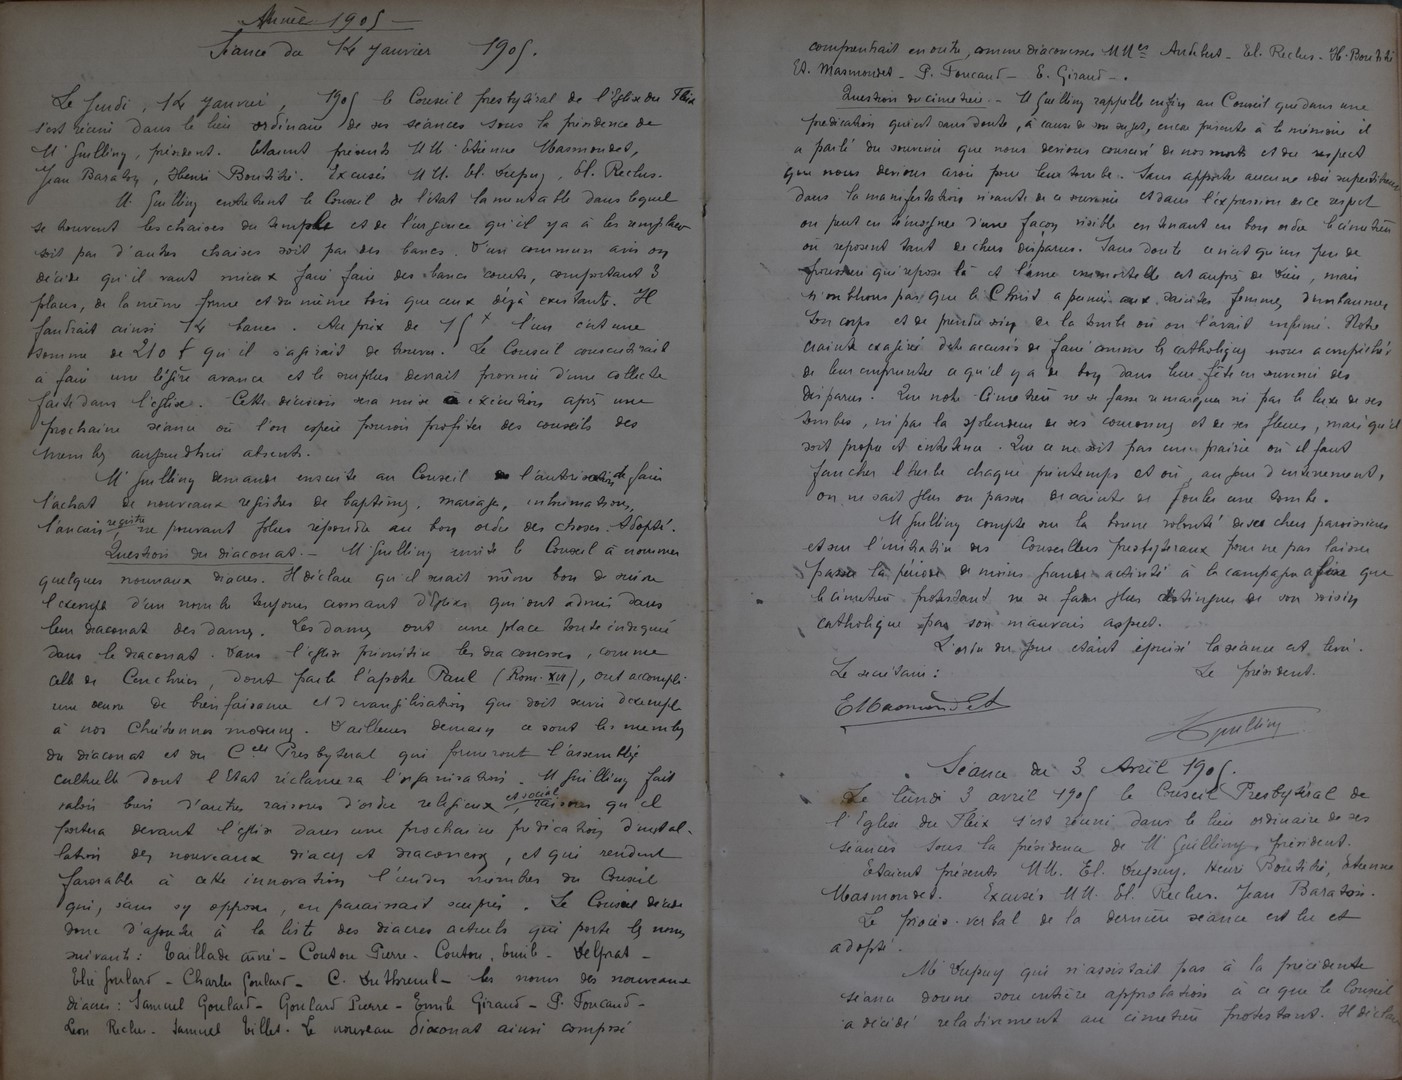 Année 1905
Séance du 12 Janvier 1905.
Le Jeudi, 12 Janvier, 1905 le Conseil presbytéral de l'Eglise du Fleix
s'est réuni dans le lieu ordinaire de ses séances sous la présidence de
M. Guelling, président. Etaient présents MM. Etienne Masmondet,
Jean Baraton, Henri Boutité. Excusés MM. El. Dupuy, El. Reclus.
M Guelling entretient le Conseil de l'état lamentable dans lequel
se trouvent les chaises du temple et de l'urgence qu'il y a à les remplacer
soit par d'autres chaises soit par des bancs. D'un commun avis on
décide qu'il vaut mieux faire faire des bancs courts, comportant 3
places, de la même forme et du même bois que ceux déjà existants. Il
faudrait ainsi 14 bancs. Au prix de 15 f l'un c'est une
somme de 210 f qu'il s'agirait de trouver. Le Conseil consentirait
à faire une légère avance et le surplus devrait provenir d'une collecte
faite dans l'église. Cette décision sera mise à exécution après une
prochaine séance où l'on espère pouvoir profiter des conseils des
membres aujourd'hui absents.
M Guelling demande ensuite au Conseil l'autorisation de faire
l'achat de nouveaux registres de baptêmes, mariages, inhumations,
l'ancien registre ne pouvant plus répondre au bon ordre des choses. Adopté.
Question du diaconat. — M Guelling invite le Conseil à nommer
quelques nouveaux diacres. Il déclare qu'il serait même bon de suivre
l'exemple d'un nombre toujours croissant d'Eglises qui ont admis dans
leur diaconat des dames. Les dames ont une place toute indiquée
dans le diaconat. Dans l'église primitive les diaconesses, comme
celle de Cenchrées, dont parle l'apôtre Paul (Rom. XVI), ont accompli
une œuvre de bienfaisance et d'évangélisation qui doit servir d'exemple
à nos Chrétiennes modernes. D'ailleurs demain ce sont les membres
du diaconat et du Ceil Presbytéral qui formeront l'assemblée
cultuelle dont l'Etat réclamera l'organisation. M Guelling fait
valoir bien d'autres raisons d'ordre religieux et social raisons qu'il
portera devant l'église dans une prochaine prédication d'instal-
lation des nouveaux diacres et diaconesses, et qui rendent
favorable à cette innovation l'un des membres du Conseil
qui, sans s'y opposer, en paraissait surpris. Le Conseil décide
donc d'ajouter à la liste des diacres actuels qui porte les noms
suivants: Taillade aîné - Couton Pierre - Couton, Emile - Delprat -
Elie Goulard - Charles Goulard - C. Duthreuil - les noms des nouveaux
diacres: Samuel Goulard - Goulard Pierre - Emile Giraud - P. Foucaud -
Léon Reclus. Samuel Villet. Le nouveau diaconat ainsi composé
comprendrait en outre, comme diaconesses MMes Audibert - El. Reclus. H. Boutité
Et. Masmondet - P. Foucaud - E. Giraud -.
Question du cimetière. - M Guelling rappelle enfin au Conseil que dans une
prédication qui est sans doute, à cause de son sujet, encore présente à la mémoire il
a parlé du souvenir que nous devions conserver de nos morts et du respect
que nous devions avoir pour leur tombe. Sans apporter aucune idée superstitieuse
dans la manifestation vivante de ce souvenir et dans l'expression de ce respect
on peut en témoigner d'une façon visible en tenant en bon ordre le cimetière
où reposent tant de chers disparus. Sans doute ce n'est qu'un peu de
poussière qui repose là et l'âme immortelle est auprès de Dieu, mais
n'oublions pas que le Christ a permis aux saintes femmes d'embaumer
son corps et de prendre soin de la tombe où on l'avait enfermé. Notre
crainte exagérée d'être accusés de faire comme les catholiques nous a empêchés
de leur emprunter ce qu'il y a de bon dans leur fête en souvenir des
disparus. Que notre Cimetière ne se fasse remarquer ni par le luxe de ses
tombes, ni par la splendeur de ses couronnes et de ses fleurs, mais qu'il
soit propre et entretenu. Que ce ne soit pas une prairie où il faut
faucher l'herbe chaque printemps et où, au jour d'enterrement,
on ne sait plus où passer de crainte de fouler une tombe.
M Guelling compte sur la bonne volonté de ses chers paroissiens
et sur l'initiative des Conseillers presbytéraux pour ne pas laisser
passer la période de moins grande activité à la campagne afin que
le cimetière protestant ne se fasse plus distinguer de son voisin
catholique par son mauvais aspect.
L'ordre du jour étant épuisé la séance est levée.
Le secrétaire: Le président.
E Masmondet
Guelling
Séance du 3 Avril 1905.
Le lundi 3 avril 1905 le Conseil Presbytéral de
l'Eglise du Fleix s'est réuni dans le lieu ordinaire de ses
séances sous la présidence de M Guelling, président.
Etaient présents MM. El. Dupuy. Henri Boutité, Etienne
Masmondet. Excusés MM. El. Reclus. Jean Baraton.
Le procès-verbal de la dernière séance est lu et
adopté.
Mr Dupuy qui n'assistait pas à la précédente
séance donne son entière approbation à ce que le Conseil
a décidé relativement au cimetière protestant. Il déclare